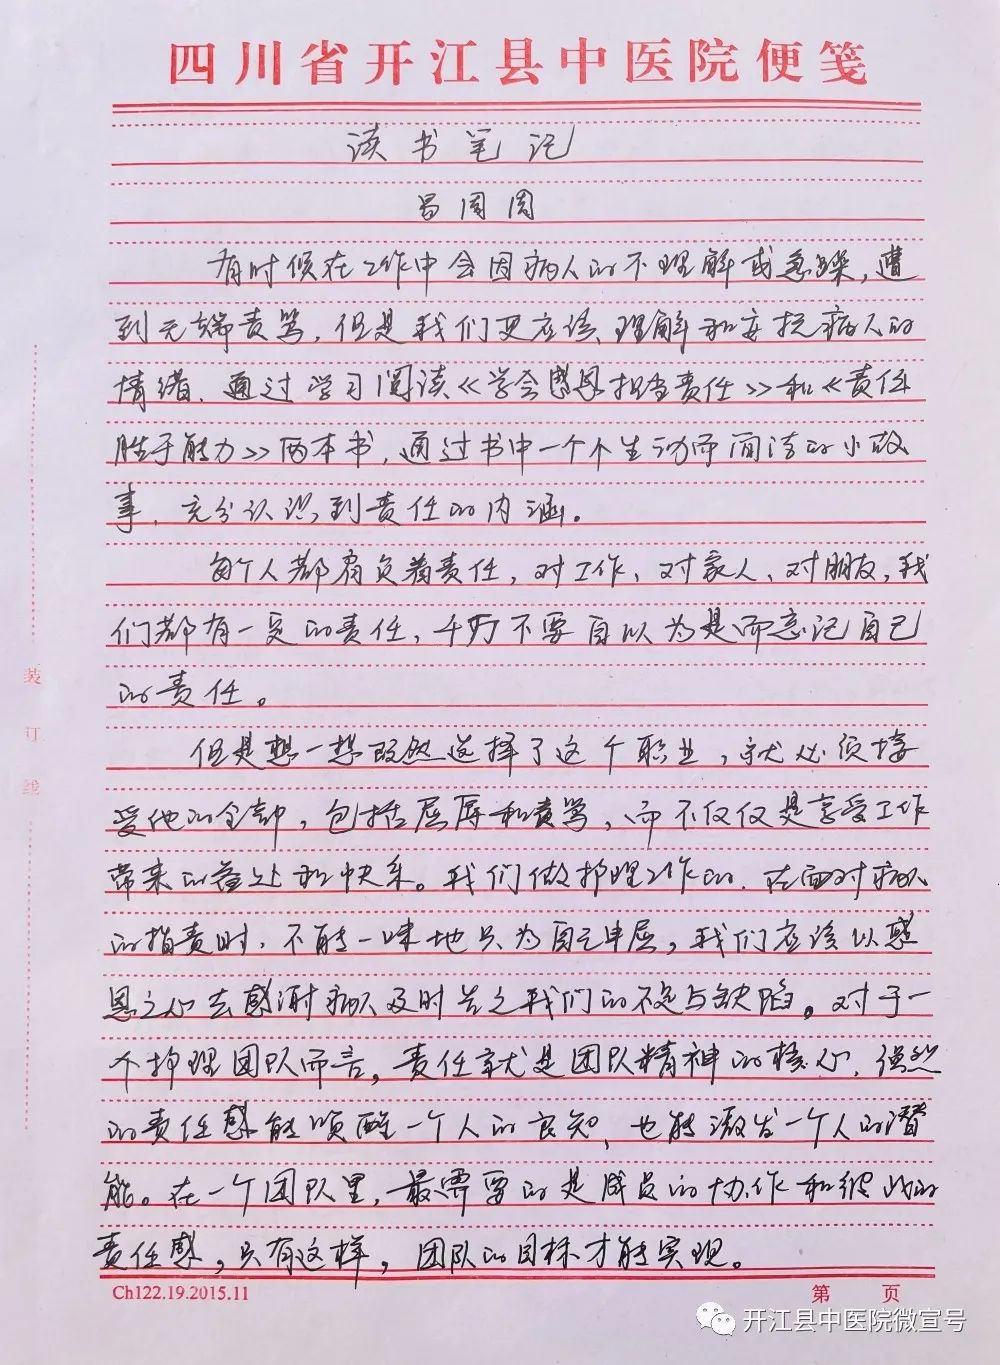 四川省开江县中医院便笺
读书笔记
昌周周
有时候在工作中会因病人的不理解或急躁,遭
到无端责骂,但是我们更应该理解和安抚病人的
情绪.通过学习阅读《学会感恩担当责任》和《责任
胜于能力》两本书,通过书中一个个生动而简洁的小故
事,充分认识到责任的内涵。
每个人都肩负着责任,对工作、对家人、对朋友,我
们都有一定的责任,千万不要自以为是而忘记自己
的责任。
但是想一想既然选择了这个职业,就必须接
受他的全部,包括屈辱和责骂,而不仅仅是享受工作
带来的益处和快乐。我们做护理工作的.在面对病人
的指责时,不能一味地只为自己申屈,我们应该以感
恩之心去感谢病人及时告之我们的不足与缺陷。对于一
个护理团队而言,责任就是团队精神的核心,强烈
的责任感能唤醒一个人的良知,也能激发一个人的潜
能。在一个团队里,最需要的是成员的协作和彼此的
责任感,只有这样,团队的目标才能实现。
装订线
Ch122.19.2015.11
第 页
开江县中医院微宣号